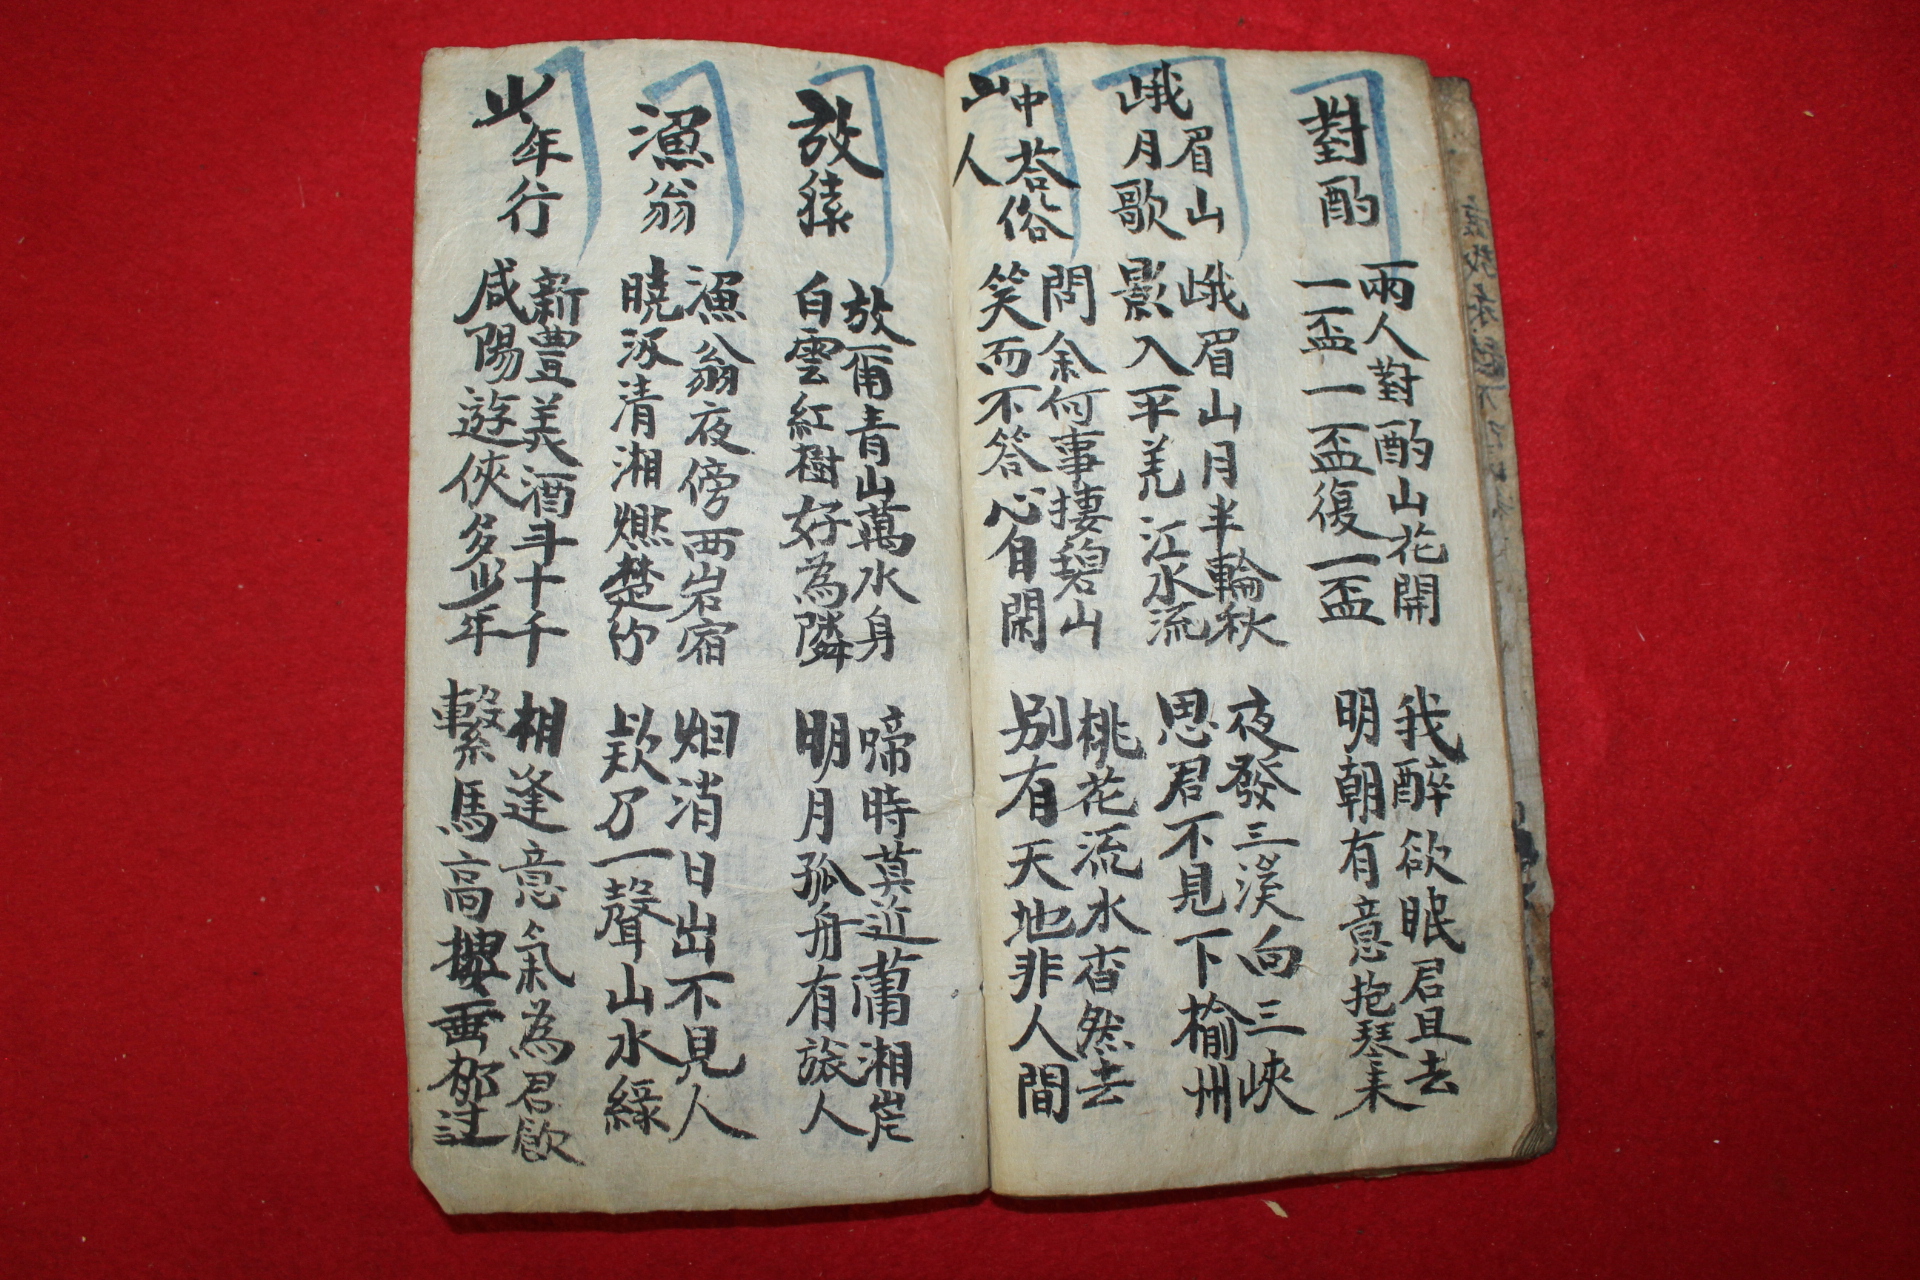 對酌
兩人對酌山花開
一盃一盃復一盃
我醉欲眠君且去
明朝有意抱琴來
峨眉山
月歌
峨眉山月半輪秋
影入平羌江水流
夜發三溪向三峽
思君不見下楡州
山中荅俗
人
問余何事捿碧山
笑而不答心自閑
桃花流水杳然去
別有天地非人間
放猿
放爾青山萬水身
白雲紅樹好為隣
啼時莫近蕭湘岸
明月孤舟有旅人
漁翁
漁翁夜傍西岩宿
曉汲清湘燃楚竹
烟消日出不見人
欵乃一聲山水綠
少年行
新豐美酒斗十千
咸陽遊俠多少年
相逢意氣為君飮
繫馬高樓垂柳邊